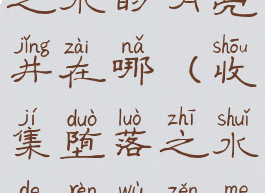 之水的月亮
jǐng zài nǎ shōu
井在哪（收
jí duò luò zhī shuǐ
集堕落之水
de rèn wù zěn me